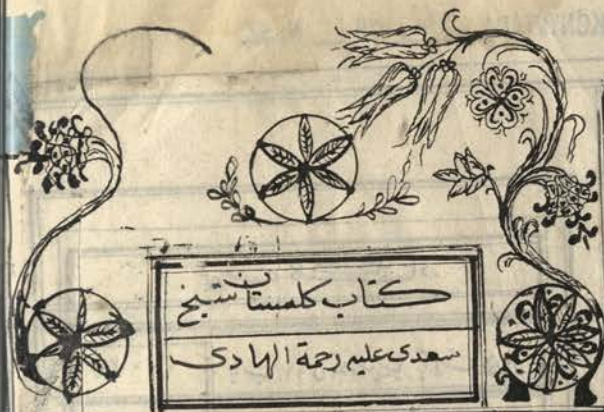 كتاب كلستان شيخ
سعدى عليه رحمة الهادى